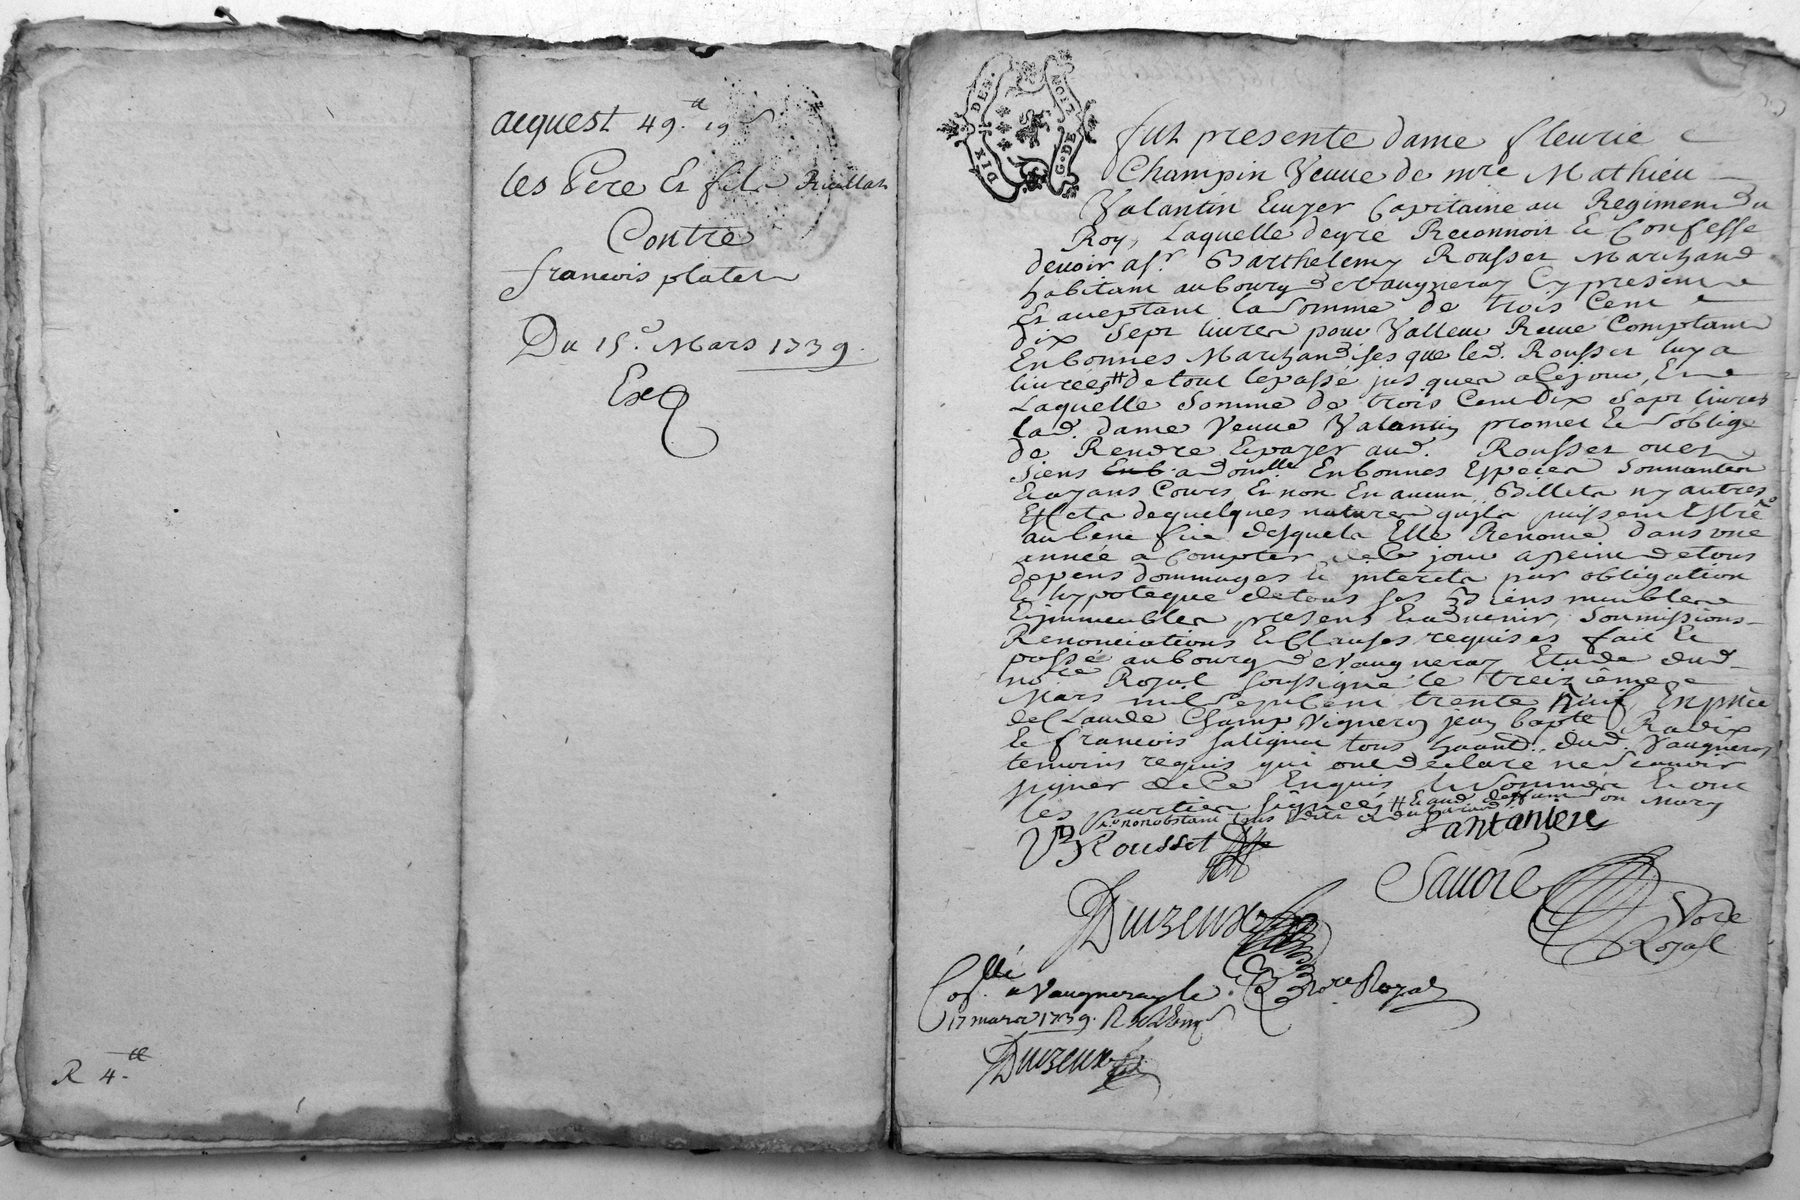 acquest 49.# 19 s
les Pere Et fils
Contre
francois platet
Du 15.e Mars 1739.
Exp
R 4.#
DIX DEN.
G. DE LION
fut presente dame fleurie
Champin Veuve de mre Mathieu
Valantin Ecuyer Capitaine au Regiment du
Roy, Laquelle degré Reconnoit Et Confesse
devoir a sr. Barthelemy Rousset Marchand
habitant au bourg de Vaugneray Cy present
Et aceptant la somme de trois Cent
dix sept livres pour Valleur Receue Comptant
En bonnes Marchandises que led. Rousset luy a
livreés # de tout le passé jusques a Ce jour, Et
Laquelle somme de trois Cent Dix sept livres
lad. dame Veuve Valantin promet Et s'oblige
de Rendre Et payer aud. Rousset ou es
siens a domille En bonnes Especes sonnantes
Et ayans Cours Et non En aucun Billets ny autres
Effets de quelques natures quils puissent Estre
au benefice desquels Elle Renonce dans une
année a Compter de Ce jour a peine de tous
depens dommages Et interets par obligation
Et hypoteque de tous ses Biens meubles
Et jmmeubles presens Et a venir, soumissions
Renonciations Et Clauses requises fait Et
passé au bourg de Vaugneray Etude dud.
nore Royal soussigné le treizième
Mars mil sept Cent trente Neuf, En pnce
de Claude Champ Vigneron jean bapte Radix
Et francois saligna tous habitd. dud. Vaugneray
temoins requis qui ont declaré ne scavoir
signer de Ce Enquis Et sommés Et ont
les parties signeés # Et aud. deffunt son Mary
nonobstant tous
B Rousset
Lantaniere
Savoie
Nore
Royal
Duizeux
Collé a Vaugneray le
17 mars 1739. R
Nore Royal
Duizeux